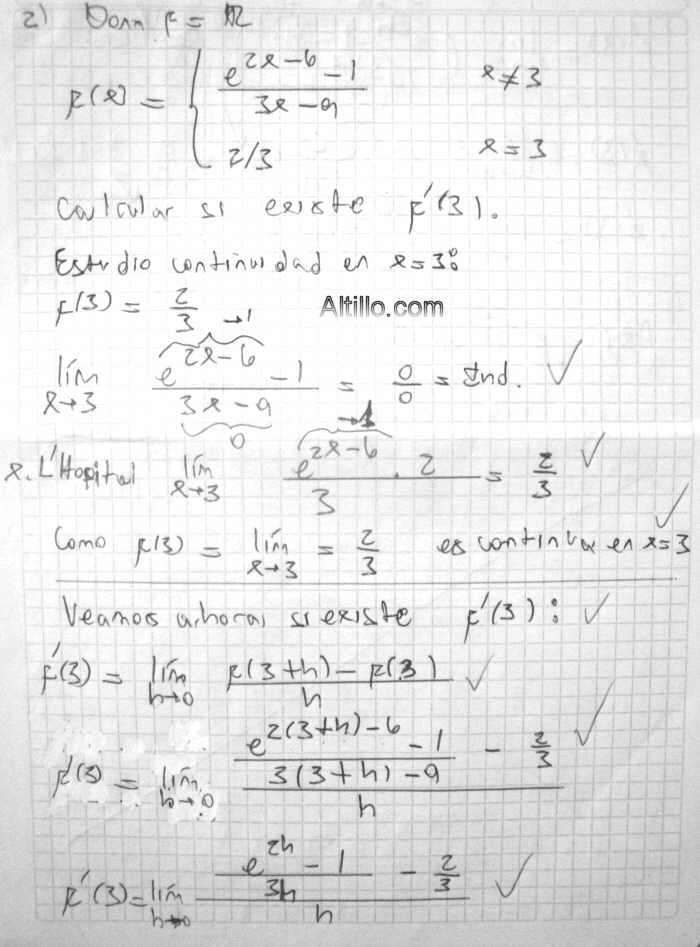 2) Dom f = ℝ
f(x) = { (e^(2x-6) - 1)/(3x-9) x≠3
2/3 x=3
Calcular si existe f'(3).
Estudio continuidad en x=3:
f(3) = 2/3
Altillo.com
lím x→3 (e^(2x-6) - 1)/(3x-9) = 0/0 = Ind. ✓
→1
0
x. L'Hopital lím x→3 (e^(2x-6) . 2)/3 = 2/3 ✓
→1
Como f(3) = lím x→3 = 2/3 es continua en x=3 ✓
Veamos ahora, si existe f'(3): ✓
f'(3) = lím h→0 (f(3+h) - f(3))/h ✓
f'(3) = lím h→0 ((e^(2(3+h)-6) - 1)/(3(3+h)-9) - 2/3)/h ✓
f'(3) = lím h→0 ((e^(2h) - 1)/(3h) - 2/3)/h ✓